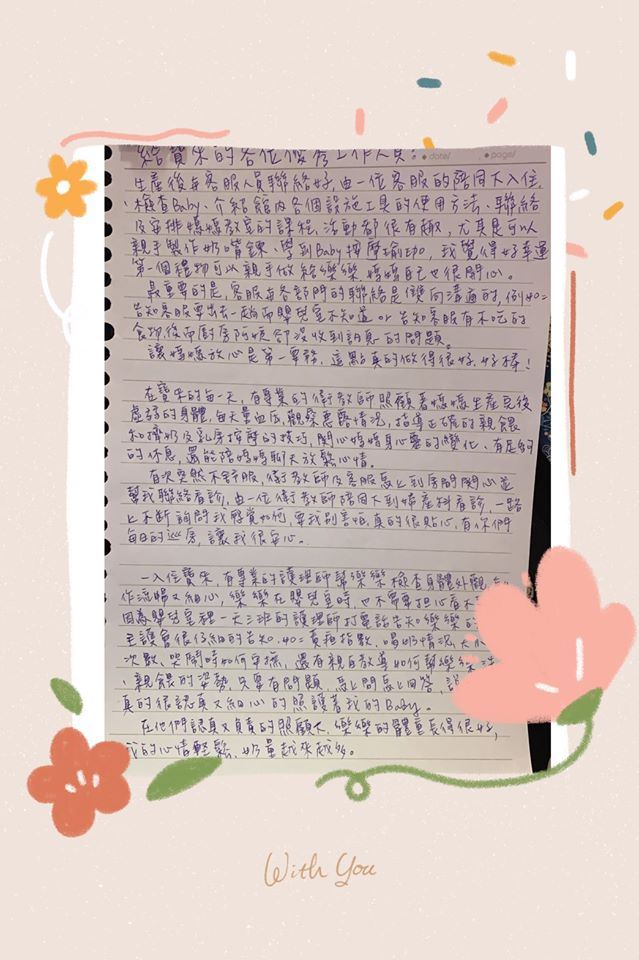 給寶來的各位優秀工作人員:
date/ page/
生產後與客服人員聯絡好,由一位客服的陪同下入住,
、檢查Baby、介紹館內各個設施工具的使用方法、聯絡
及安排媽媽教室的課程,活動都很有趣,尤其是可以
親手製作奶嘴鍊、學到Baby按摩瑜珈,我覺得好幸運
第一個禮物可以親手做給樂樂,媽媽自己也很開心。
最重要的是,客服與各部門的聯絡是雙向溝通的,例如=
告知客服要出去一趟而嬰兒室不知道 or 告知客服有不吃的
食物後而廚房阿姨卻沒收到訊息的問題。
讓媽媽放心是第一要務,這點真的做得很好,好棒!
在寶來的每一天,有專業的衛教師照顧著媽媽生產完後
虛弱的身體,每天量血压,觀察惡露情況,指導正確的親餵
和擠奶及乳房按摩的技巧,關心媽媽身心靈的變化、有足夠
的休息,還能陪媽媽聊天放鬆心情。
有次突然不舒服,衛教師及客服馬上到房間關心並
幫我聯絡看診,由一位衛教師陪同下到婦產科看診,一路
上不斷詢問我感覺如何,要我別害怕,真的很貼心,有你們
每日的巡房,讓我很安心。
一入住寶來,有專業的護理師幫樂樂檢查身體外觀,
作流暢又細心,樂樂在嬰兒室時,也不需要担心有
因為嬰兒室裡一天三班的護理師打電話告知樂樂的
主護會很仔細的告知,如=黃疸指數、喝奶情況,大
次數、哭鬧時如何安撫,還有親自教導如何幫樂樂
、親餵的姿勢,只要有問題,馬上問馬上回答,
真的很認真又細心的照護著我的Baby。
在他們認真又負責的照顧下,樂樂的體重長得很好,
我的心情輕鬆、奶量越來越多。
With You